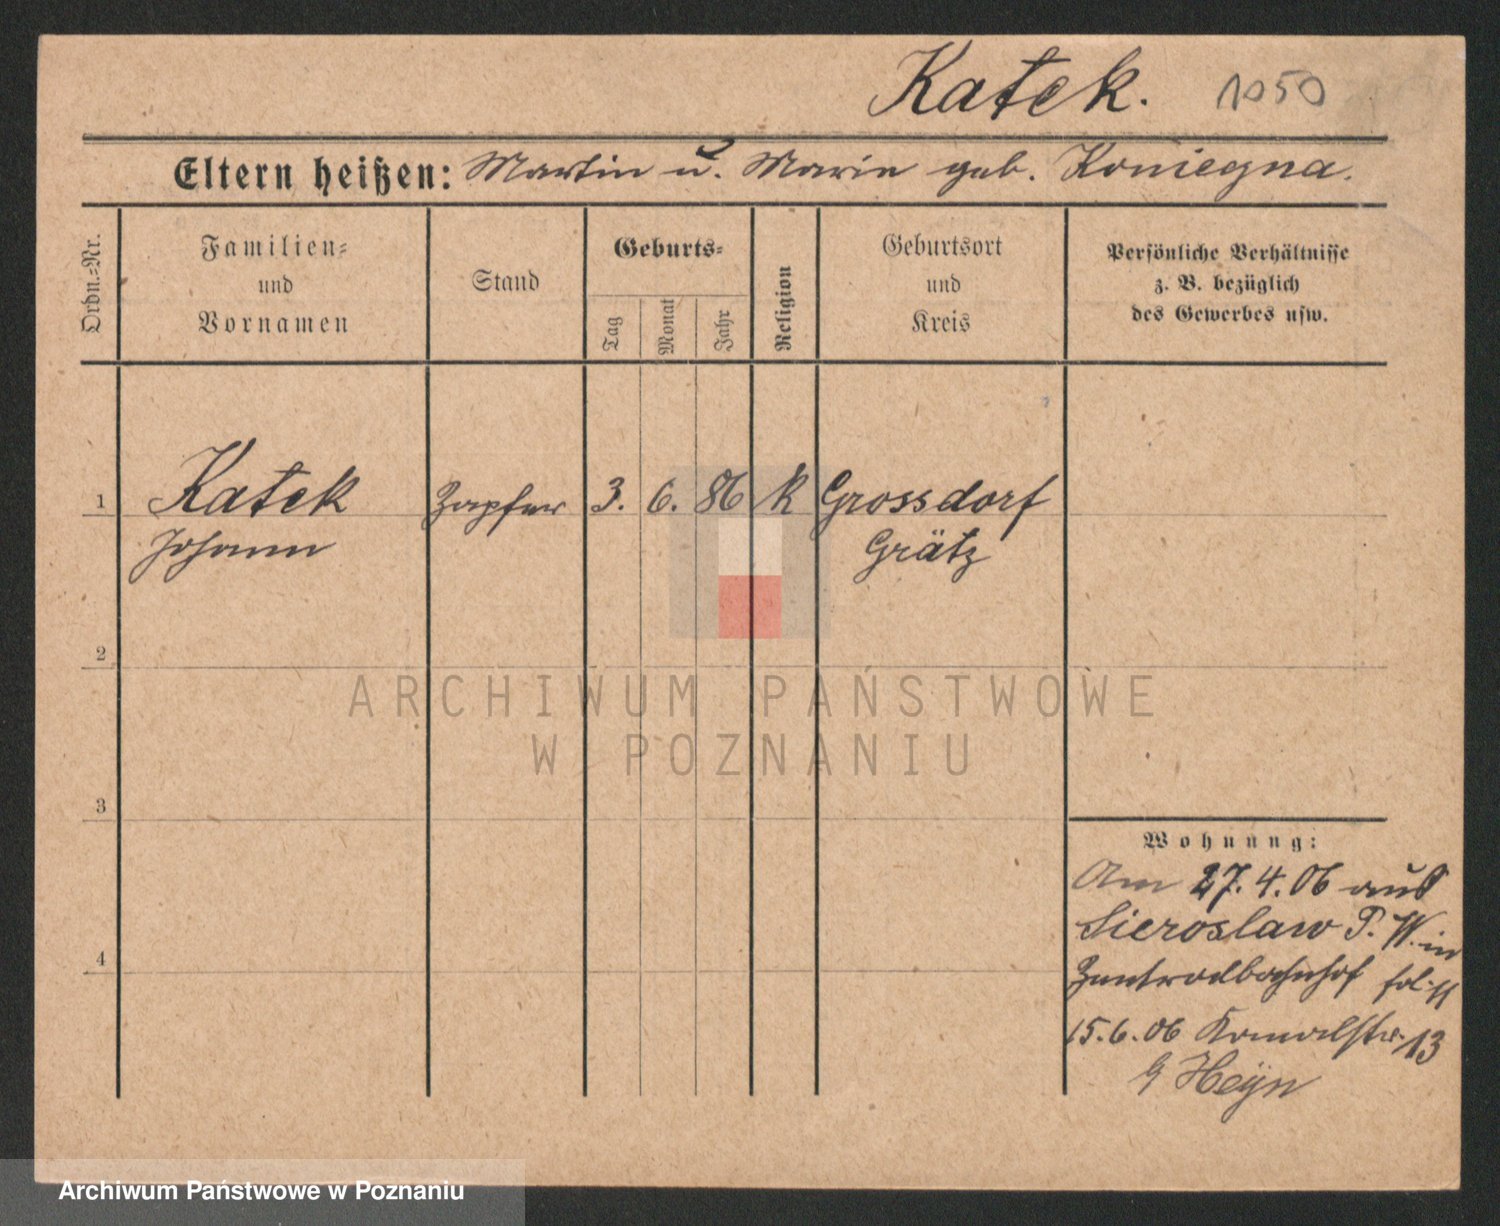 Katek. 1050
Eltern heißen: Martin u. Marie geb. Koniegna.
Ordn.-Nr.
Familien-
und
Vornamen
Stand
Geburts-
Tag
Monat
Jahr
Religion
Geburtsort
und
Kreis
Persönliche Verhältnisse
z. B. bezüglich
des Gewerbes usw.
1 Katek Zapfer 3. 6. 86 k Grossdorf
Johann Grätz
2
ARCHIWUM PAŃSTWOWE
W POZNANIU
3
4
Wohnung:
Am 27.4.06 aus
Sieroslaw P. W. in
Zentralbahnhof
15.6.06 Kanalstr. 13
Heyn
Archiwum Państwowe w Poznaniu